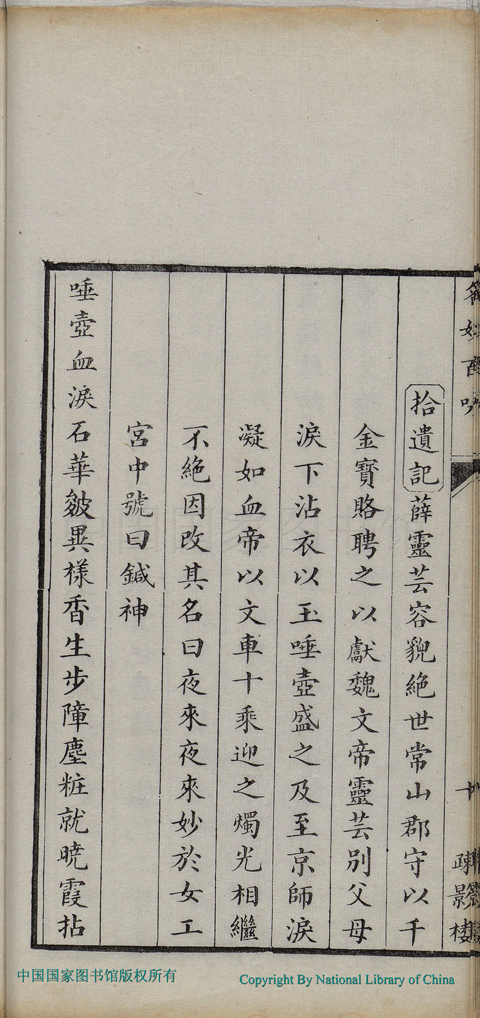 拾遺記薛靈芸容貌絕世常山郡守以千
金寳賂聘之以獻魏文帝靈芸別父母
淚下沾衣以玉唾壺盛之及至京師淚
凝如血帝以文車十乘迎之燭光相繼
不絕因改其名曰夜來夜來妙於女工
宮中號曰鍼神
唾壺血淚石華皴異樣香生步障塵粧就曉霞拈
中国国家图书馆版权所有
Copyright By National Library of China